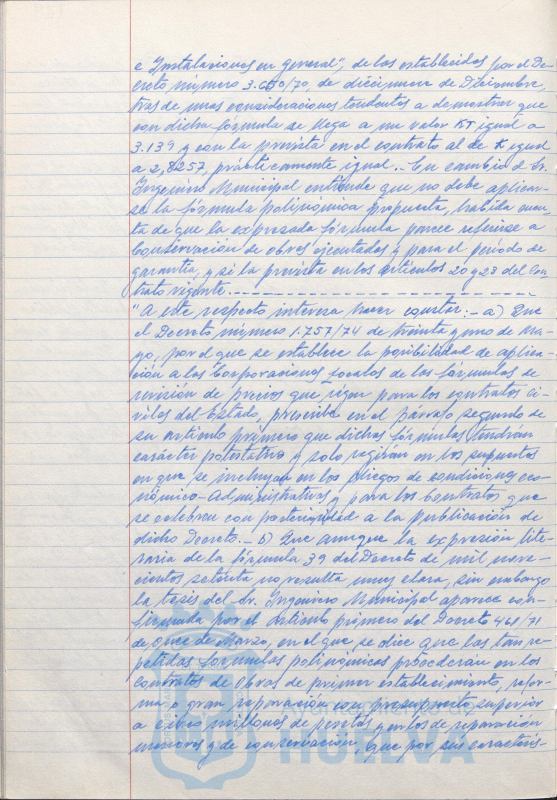 e Instalaciones en general", de las establecidas por el De-
creto número 3.650/70, de diecinueve de Diciembre,
tras de unas consideraciones tendentes a demostrar que
con dicha fórmula se llega a un valor KT igual a
3.139 y con la prevista en el contrato al de K igual
a 2,8257, prácticamente igual.- En cambio el Sr.
Ingeniero Municipal entiende que no debe aplicar-
se la fórmula polinómica propuesta, habida cuen-
ta de que la expresada fórmula parece referirse a
Conservación de obras ejecutadas y para el período de
garantía, y si la prevista en los artículos 20 y 23 del Con-
trato vigente.
"A este respecto interesa hacer constar: - a) Que
el Decreto número 1.757/74 de treinta y uno de Ma-
yo, por el que se establece la posibilidad de aplica-
ción a las Corporaciones Locales de las fórmulas de
revisión de precios que rigen para los contratos ci-
viles del Estado, prescribe en el párrafo segundo de
su artículo primero que dichas fórmulas tendrán
carácter potestativo y solo regirán en los supuestos
en que se incluyan en los pliegos de condiciones eco-
nómico-Administrativas y para los Contratos que
se celebren con posterioridad a la publicación de
dicho Decreto. - b) Que aunque la expresión lite-
raria de la fórmula 39 del Decreto de mil nove-
cientos setenta no resulta muy clara, sin embargo
la tesis del Sr. Ingeniero Municipal aparece con-
firmada por el artículo primero del Decreto 461/71
de Once de Marzo, en el que se dice que las tan re-
petidas fórmulas polinómicas procederan en los
contratos de Obras de primer establecimiento, refor-
ma o gran reparación con presupuesto superior
a cinco millones de pesetas y en los de reparación
menores y de conservación, que por sus caracterís-
HUELVA